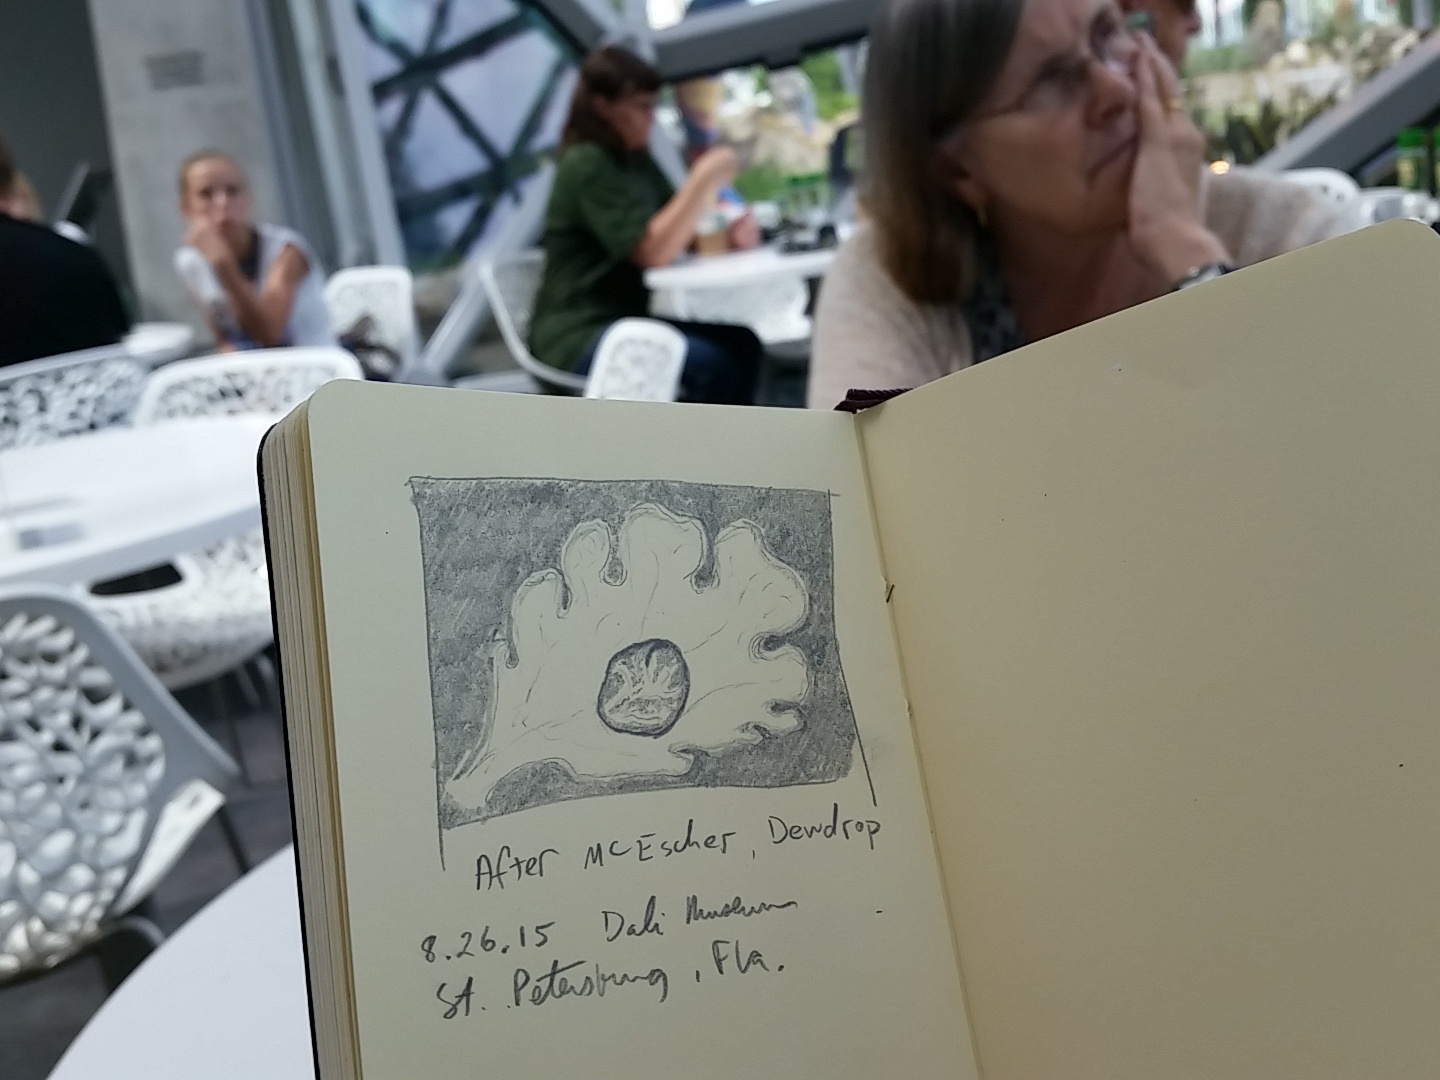 After MC Escher, Dewdrop
8.26.15 Dali Museum
St. Petersburg, Fla.